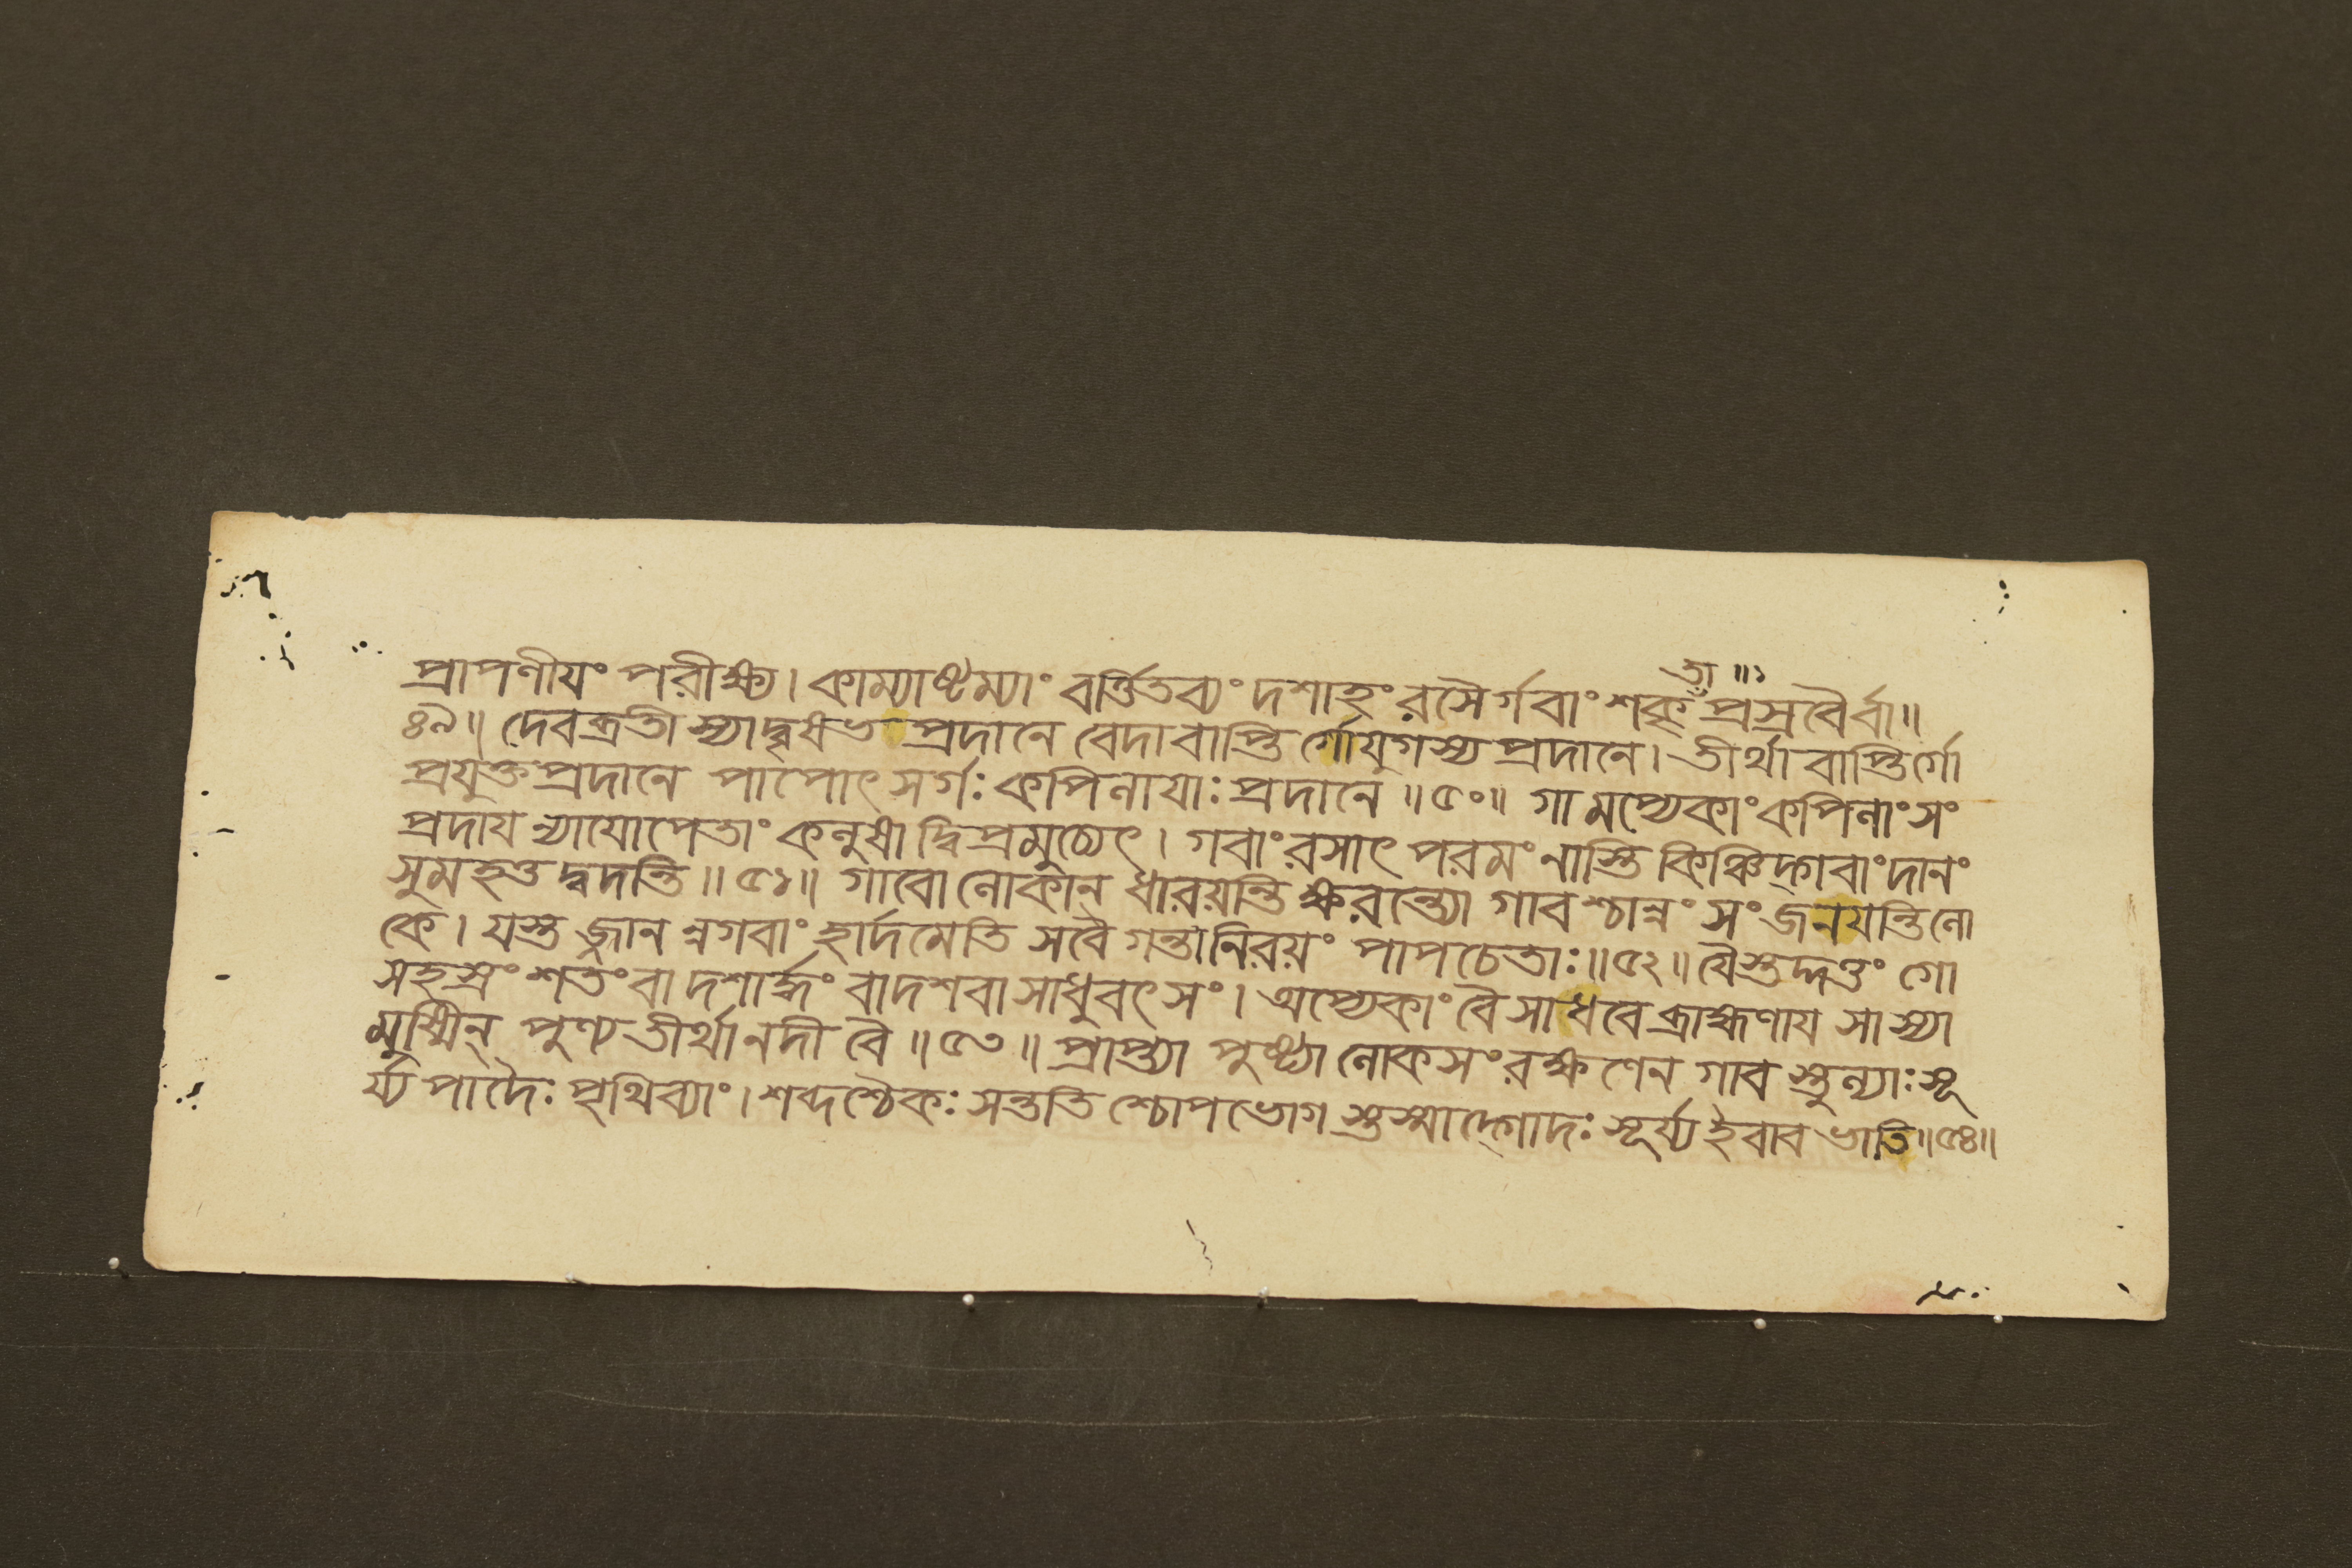 তা॥১
প্রাপণীয়ং পরীক্ষ্য। কাম্যাষ্টম্যাং বর্ত্তিতব্যং দশাহং রসৈর্গবাং শকৃ প্রস্রবৈর্বা॥
৪৯॥ দেবব্রতী স্যাদ্বৃষভ প্রদানে বেদাবাপ্তি র্গোযুগস্য প্রদানে। তীর্থাবাপ্তির্গো
প্রযুক্তপ্রদানে পাপোৎসর্গঃ কপিলায়াঃ প্রদানে॥৫০॥ গামপ্যেকাং কপিলাং সং
প্রদায় ন্যায়োপেতাং কলুষাদ্বিপ্রমুচ্যেৎ। গবাং রসাৎ পরমং নাস্তি কিঞ্চিদ্গবাং দানং
সুমহত্তদ্বদন্তি॥৫১॥ গাবো লোকান্ ধারয়ন্তি ক্ষরন্ত্যো গাবশ্চান্নং সংজনয়ন্তি লো
কে। যস্তজ্জানন্নগবাং হার্দমেতি সবৈ গন্তা নিরয়ং পাপচেতাঃ॥৫২॥ যৈস্তদ্দত্তং গো
সহস্রং শতং বা দশার্দ্ধং বা দশবা সাধুবৎসং। অপ্যেকাং বৈ সাধবে ব্রাহ্মণায় সাস্যা
মুষ্মিন্ পুণ্যতীর্থা নদী বৈ॥৫৩॥ প্রাপ্ত্যা পুষ্ট্যা লোকসংরক্ষণেন গাব স্তুল্যাঃ সূ
র্য্য পাদৈঃ পৃথিব্যাং। শব্দশ্চৈকঃ সন্ততি শ্চোপভোগ স্তস্মাদ্গোদঃ সূর্য্য ইবাব ভাতি॥৫৪॥